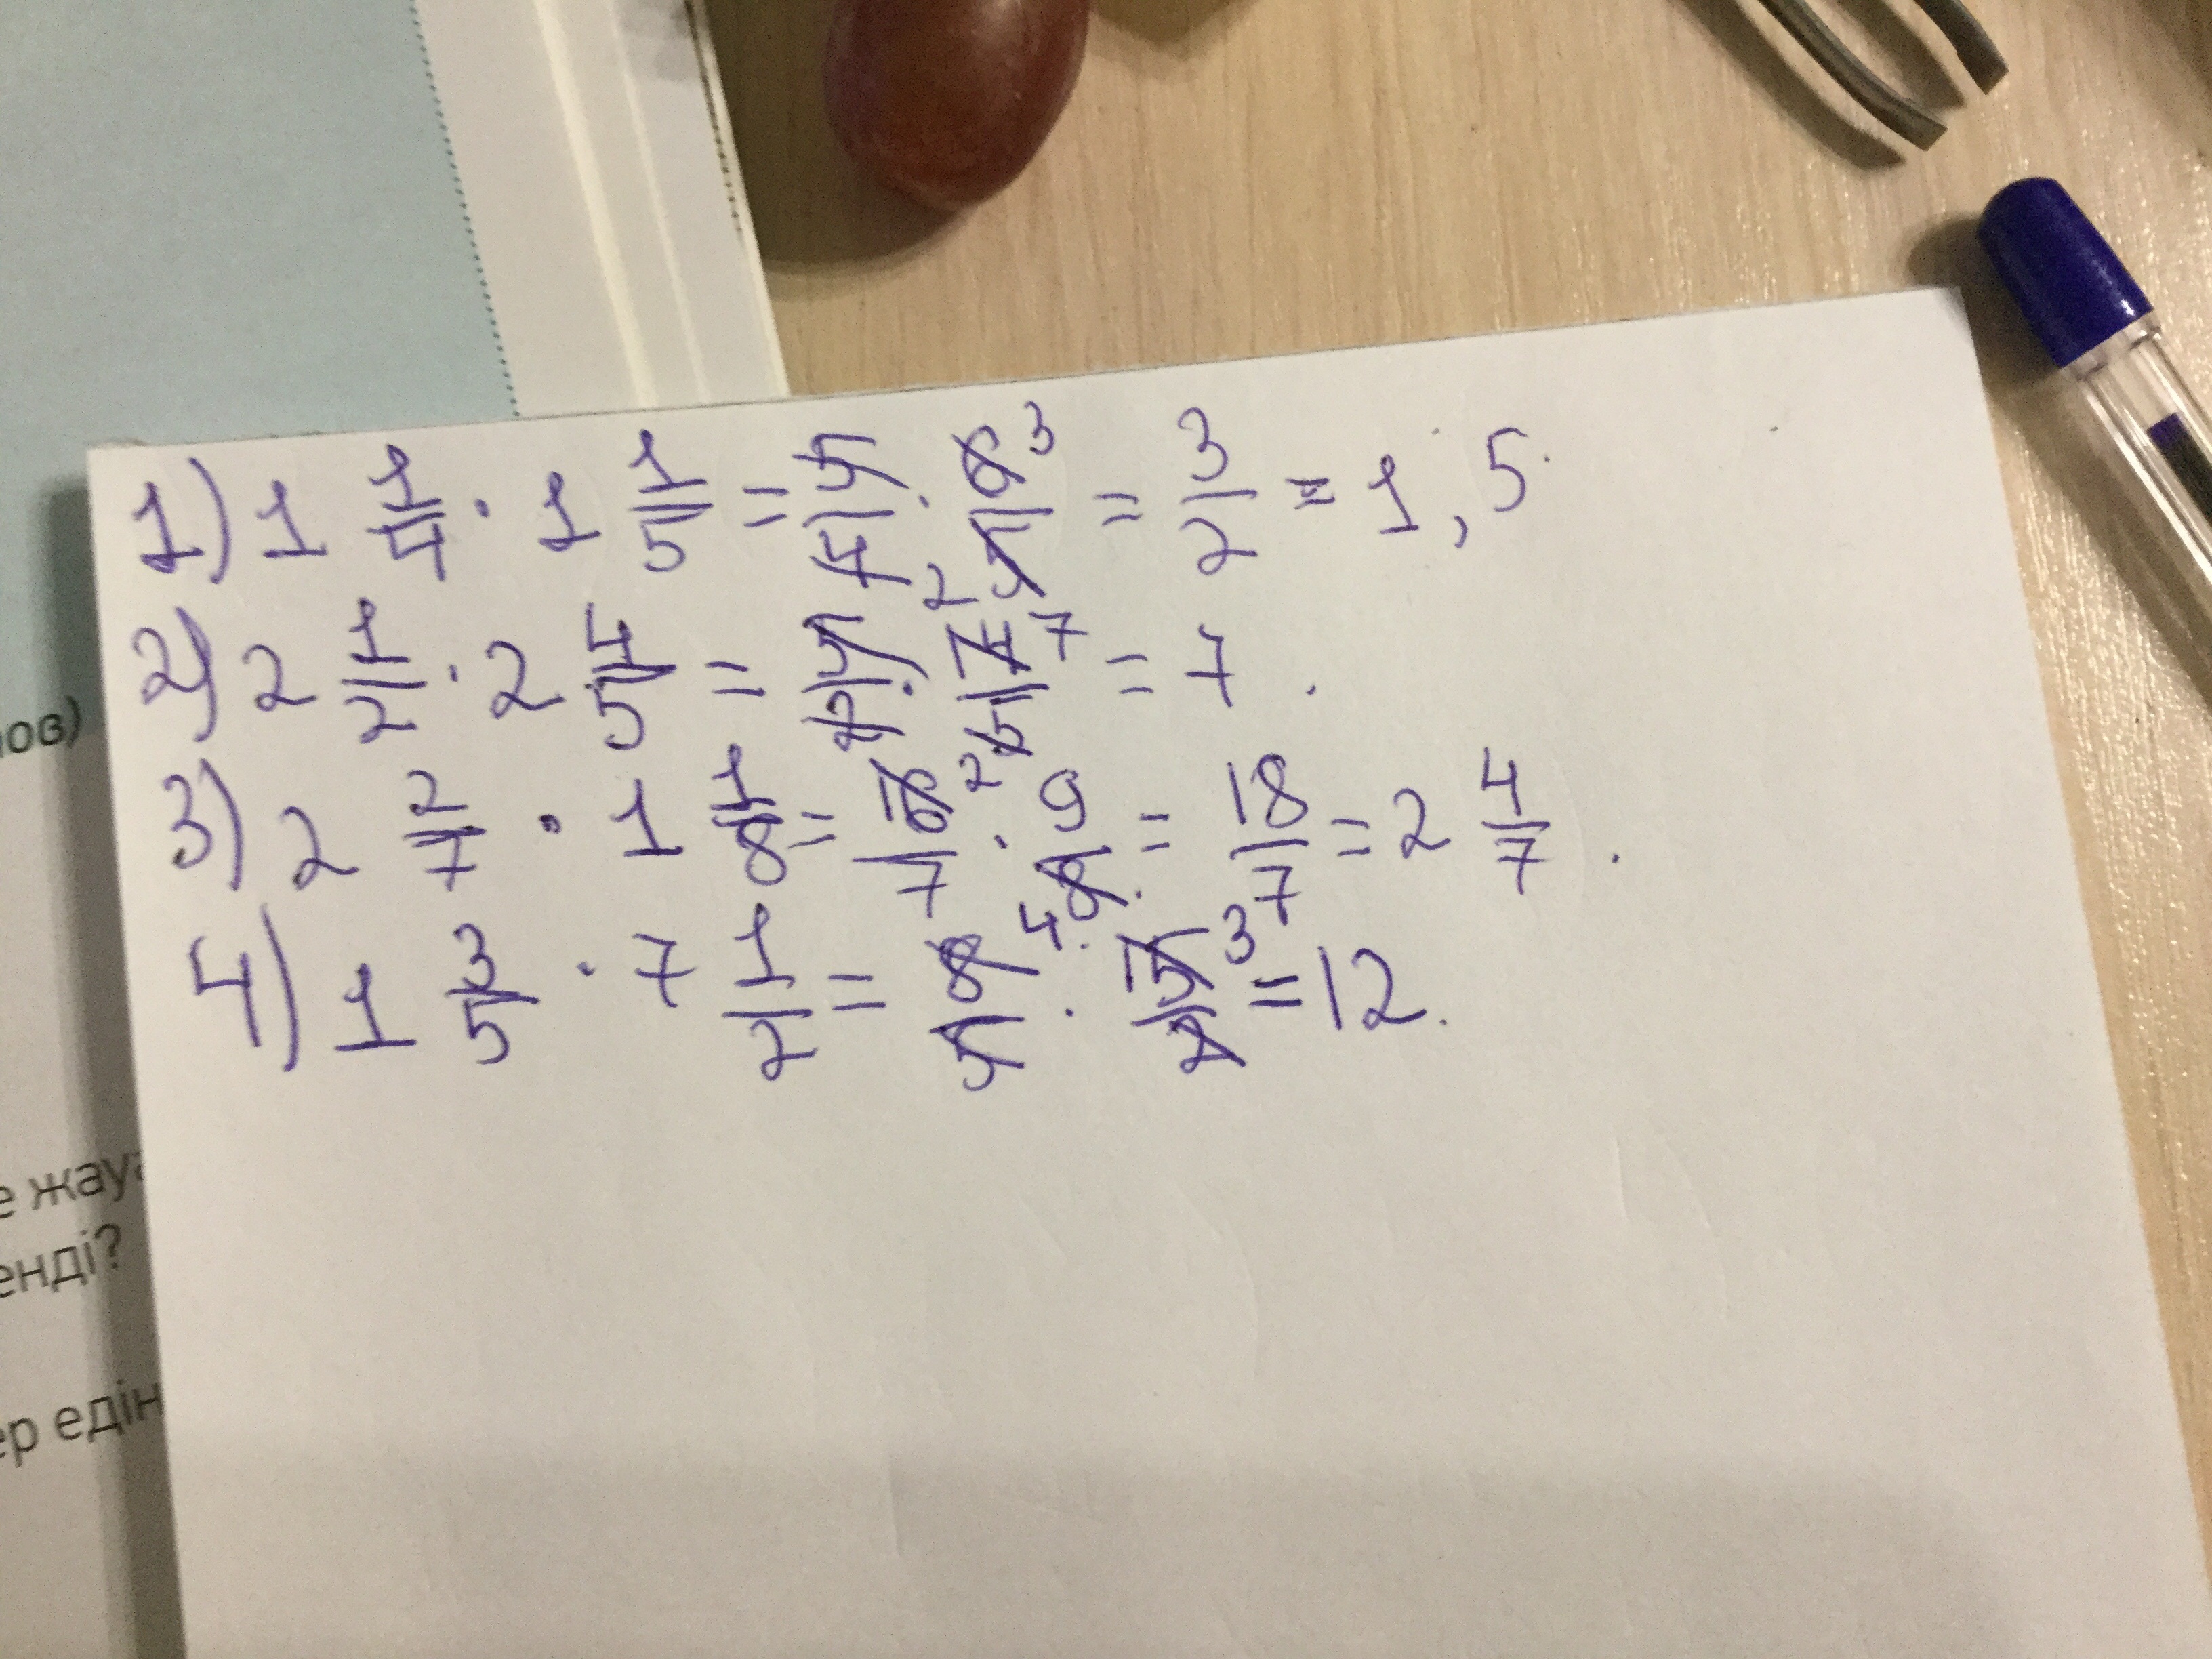 1) 1 1/4 · 1 1/5 = 5/4 2 · 6 3/5 = 3/2 = 1,5.
2) 2 1/2 · 2 4/5 = 5/2 · 14 7/5 = 7.
3) 2 2/7 · 1 1/8 = 16 2/7 · 9/8 = 18/7 = 2 4/7.
4) 1 3/5 · 7 1/2 = 8 4/5 · 15 3/2 = 12.
ов)
е
енді?
ер едің